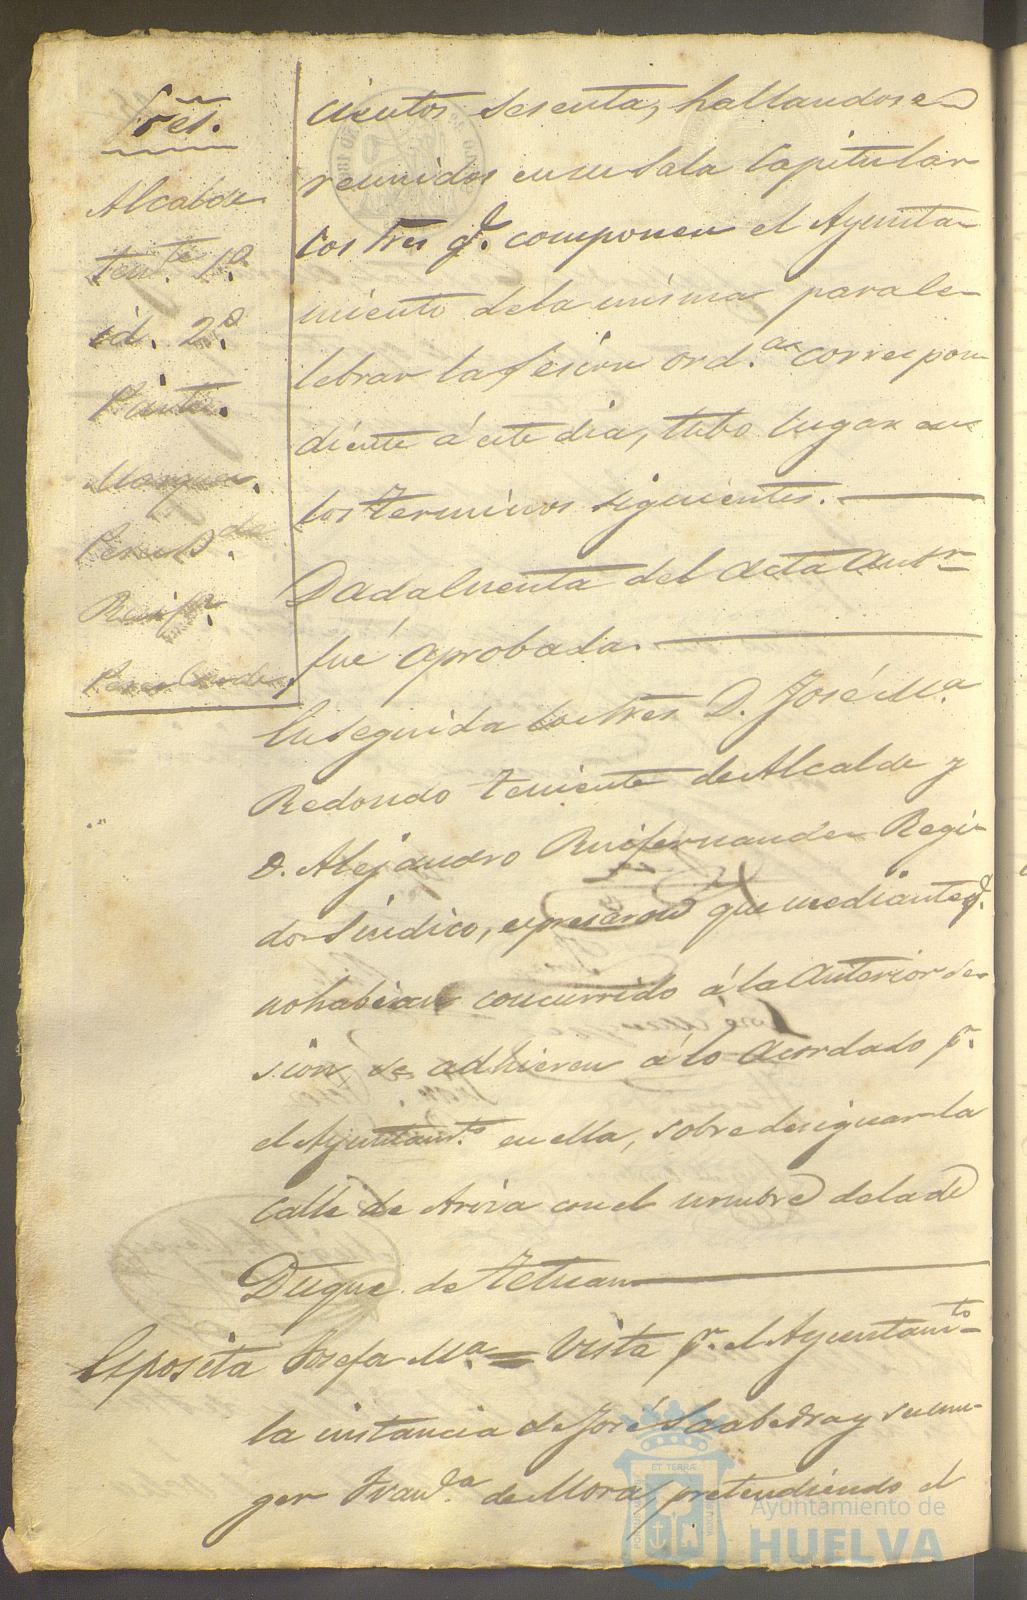 Sres.
Alcalde
Tente. 1º.
id. 2º.
Ruifz.
cientos sesenta, hallandose
reunidos en su Sala Capitular
los Sres q. componen el Ayunta-
miento de la misma para ce-
lebrar la sesion ord.a correspon
diente á este dia, tubo lugar en
los terminos siguientes.
Dada cuenta del acta antr
fué aprobada.
Enseguida los Sres D. José Ma.
Redondo teniente de Alcalde y
D. Alejandro Ruifernandez Regi-
dor Sindico, espresaron que mediante q.
no habian concurrido á la anterior se-
sion se adhieren á lo acordado pr.
el Ayuntamto. en ella, sobre designar la
Calle de Arriba con el nombre de la de
Duque de Tetuan
Esposita Josefa Ma. = Vista pr. el Ayuntamto
la instancia de José Saabedra y su mu-
ger Franda. de Mora, pretendiendo el
ET TERRÆ
Ayuntamiento de
HUELVA